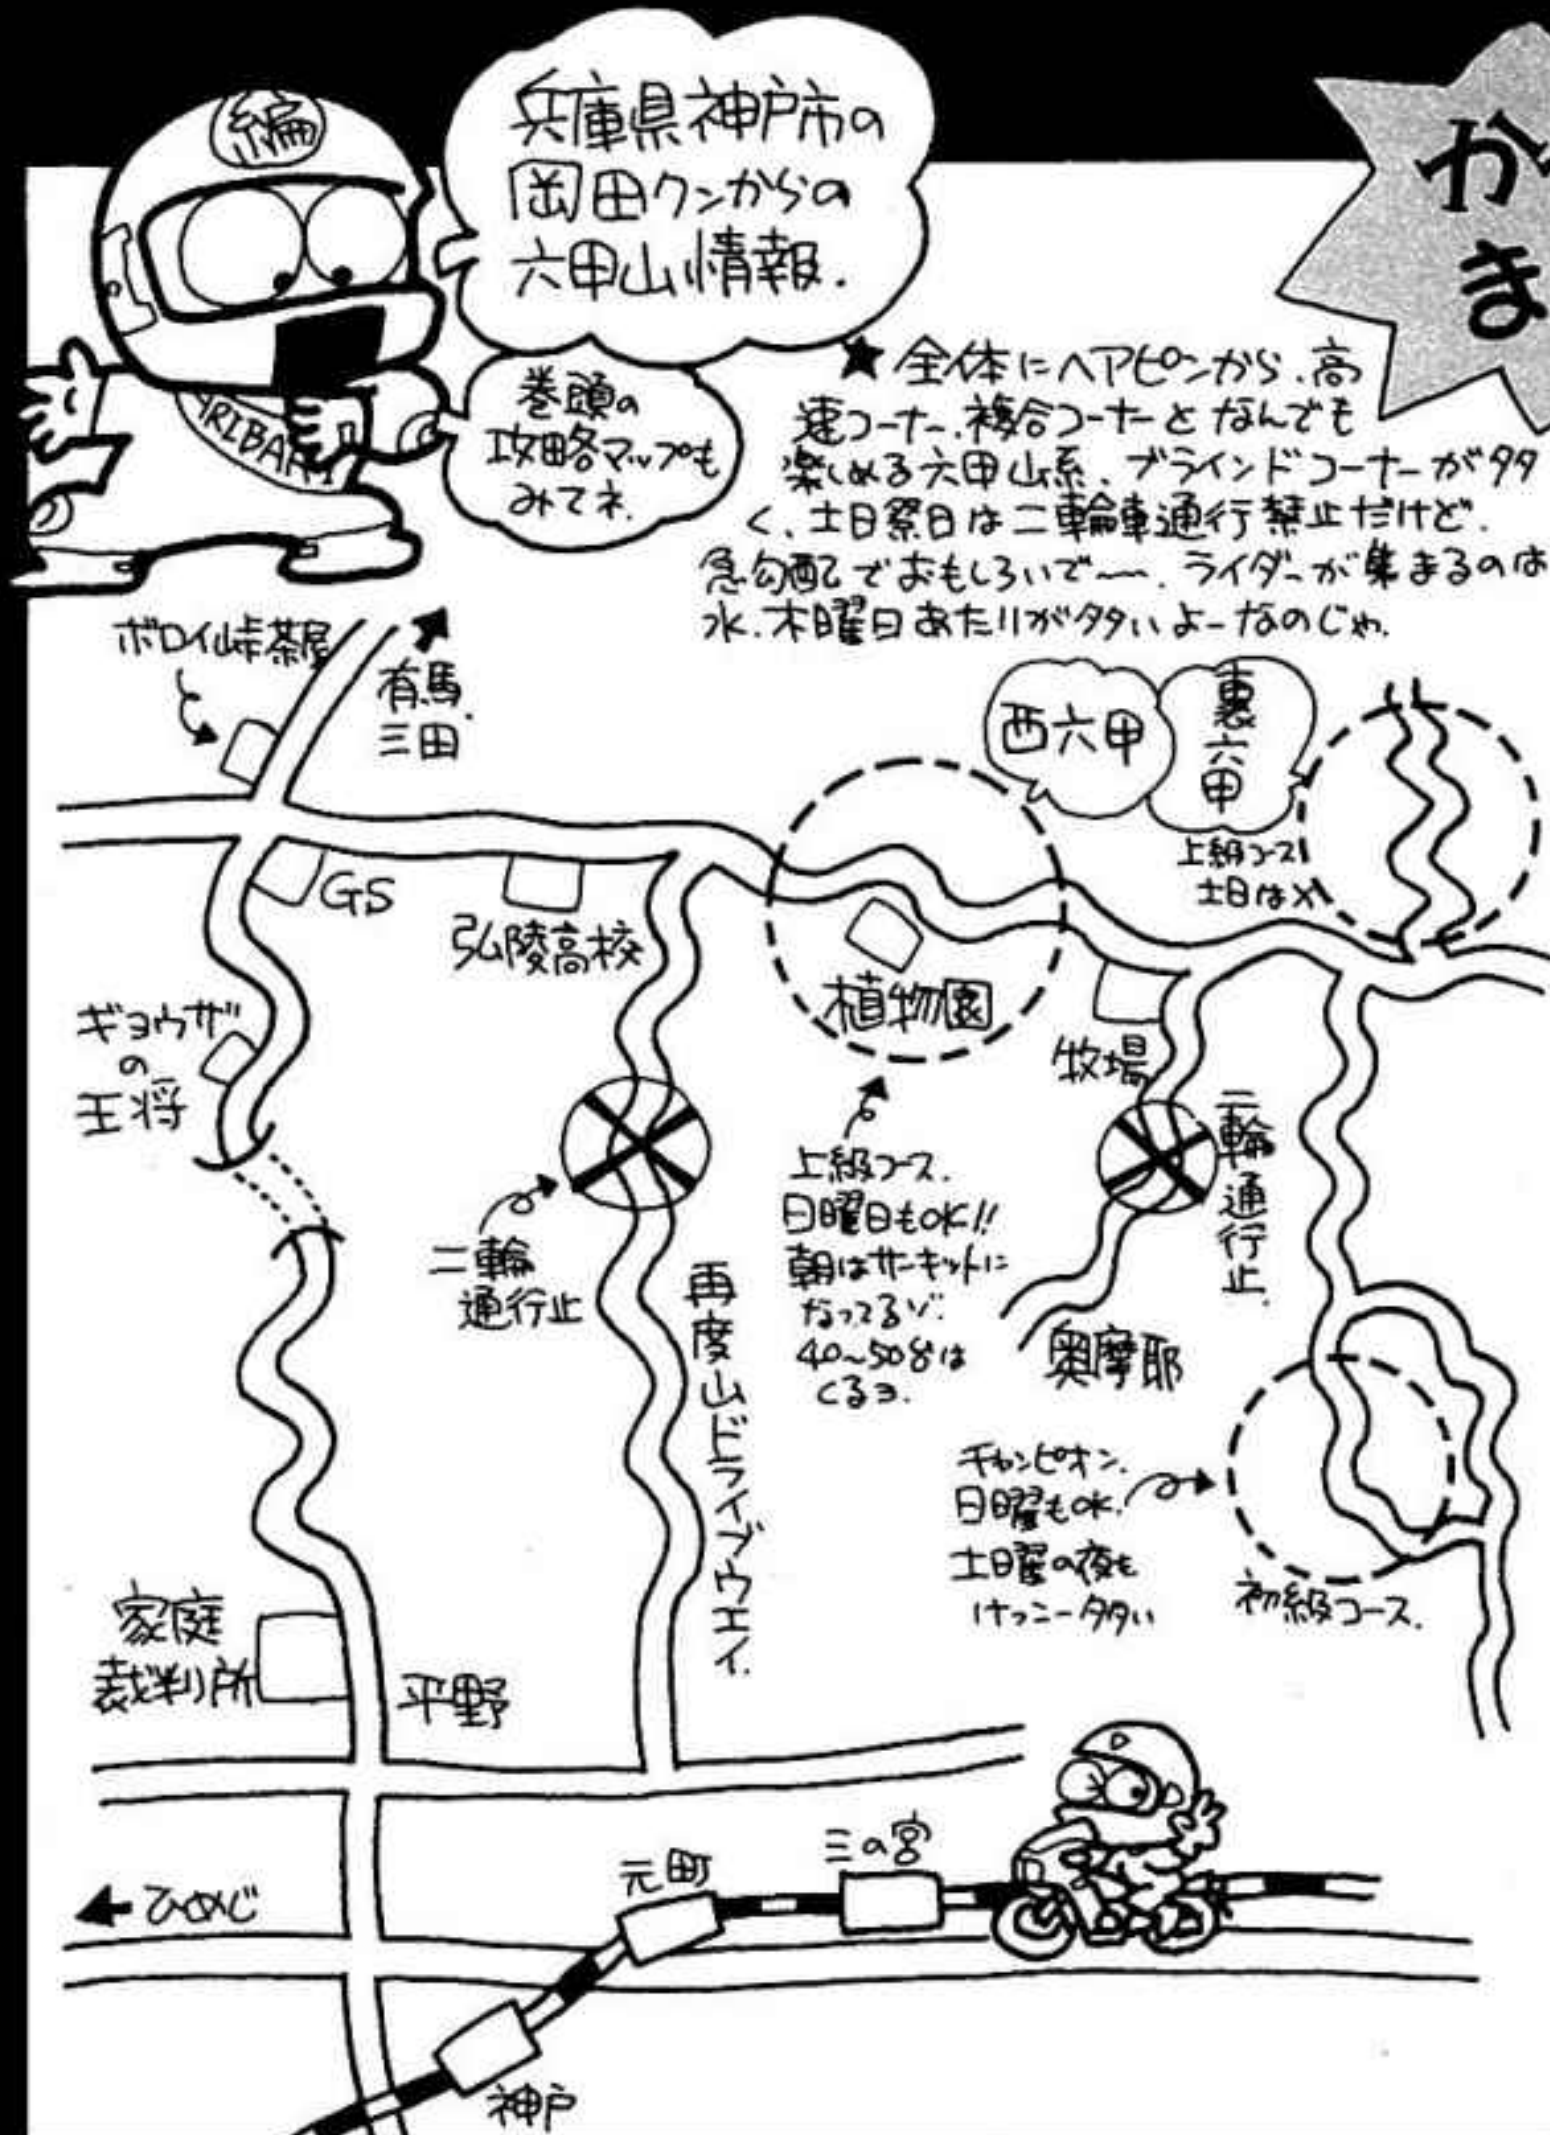 編
兵庫県神戸市の
岡田クンからの
六甲山情報.
巻頭の
攻略マップも
みてネ.
か
ま
★全体にヘアピンから、高
速コーナー、複合コーナーとなんでも
楽しめる六甲山系、ブラインドコーナーが多
く、土日祭日は二輪車通行禁止だけど.
急勾配でおもしろいで〜〜. ライダーが集まるのは
水.木曜日あたりが多いよーなのじゃ.
ボロイ峠茶屋
有馬.
三田
西六甲
裏六甲
上級コース
土日は×
GS
弘陵高校
植物園
牧場
ギョウザ
の
王将
二輪
通行止
再度山ドライブウエイ.
上級コース.
日曜日もOK!!
朝はサーキットに
なってるゾ.
40~50台は
くるヨ.
二輪通行止.
奥摩耶
チャンピオン.
日曜もOK.
土日曜の夜も
けっこー多い
初級コース.
家庭
裁判所
平野
←ひめじ
元町
三の宮
神戸